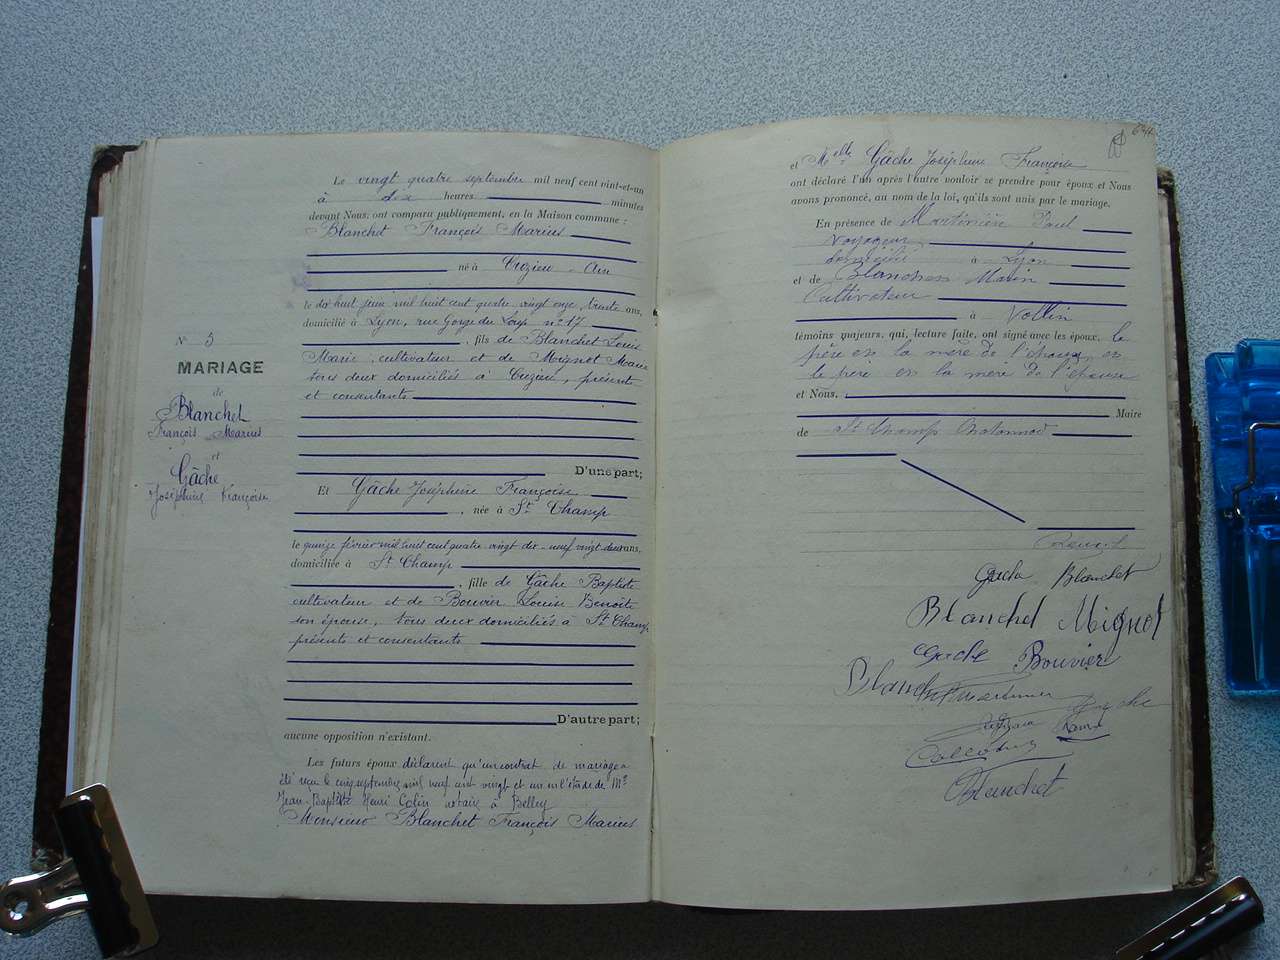 N° 5
MARIAGE
de
Blanchet
François Marius
et
Gâche
Joséphine Françoise
Le vingt quatre septembre mil neuf cent vingt-et-un
à dix heures minutes
devant Nous, ont comparu publiquement, en la Maison commune :
Blanchet François Marius
né à Cuzieu - Ain
le dix huit juin mil huit cent quatre vingt onze, trente ans,
domicilié à Lyon, rue Gorge du Loup n° 17
, fils de Blanchet Louis
Marie, cultivateur et de Mignot Marie
tous deux domiciliés à Cuzieu, présents
et consentants
D'une part;
Et Gâche Joséphine Françoise
, née à St Champ
le quinze février mil huit cent quatre vingt dix-neuf vingt deux ans,
domiciliée à St Champ
, fille de Gâche Baptiste
cultivateur et de Bouvier Louise Benoite
son épouse, tous deux domiciliés à St Champ
présents et consentants
D'autre part;
aucune opposition n'existant.
Les futurs époux déclarent qu'un contrat de mariage a
été reçu le cinq septembre mil neuf cent vingt et un en l'étude de Me
Jean Baptiste Henri Colin notaire à Belley
Monsieur Blanchet François Marius
634
et Melle Gâche Joséphine Françoise
ont déclaré l'un après l'autre vouloir se prendre pour époux et Nous
avons prononcé, au nom de la loi, qu'ils sont unis par le mariage.
En présence de Martinière Paul
voyageur
domicilié à Lyon
et de Blanchet Marin
Cultivateur
à Vollin
témoins majeurs, qui, lecture faite, ont signé avec les époux, le
père et la mère de l'époux, et
le père et la mère de l'épouse
et Nous,
Maire
de St Champ Chatonnod
Gache Blanchet
Blanchet Mignot
Gache Bouvier
Blanchet
Blanchet